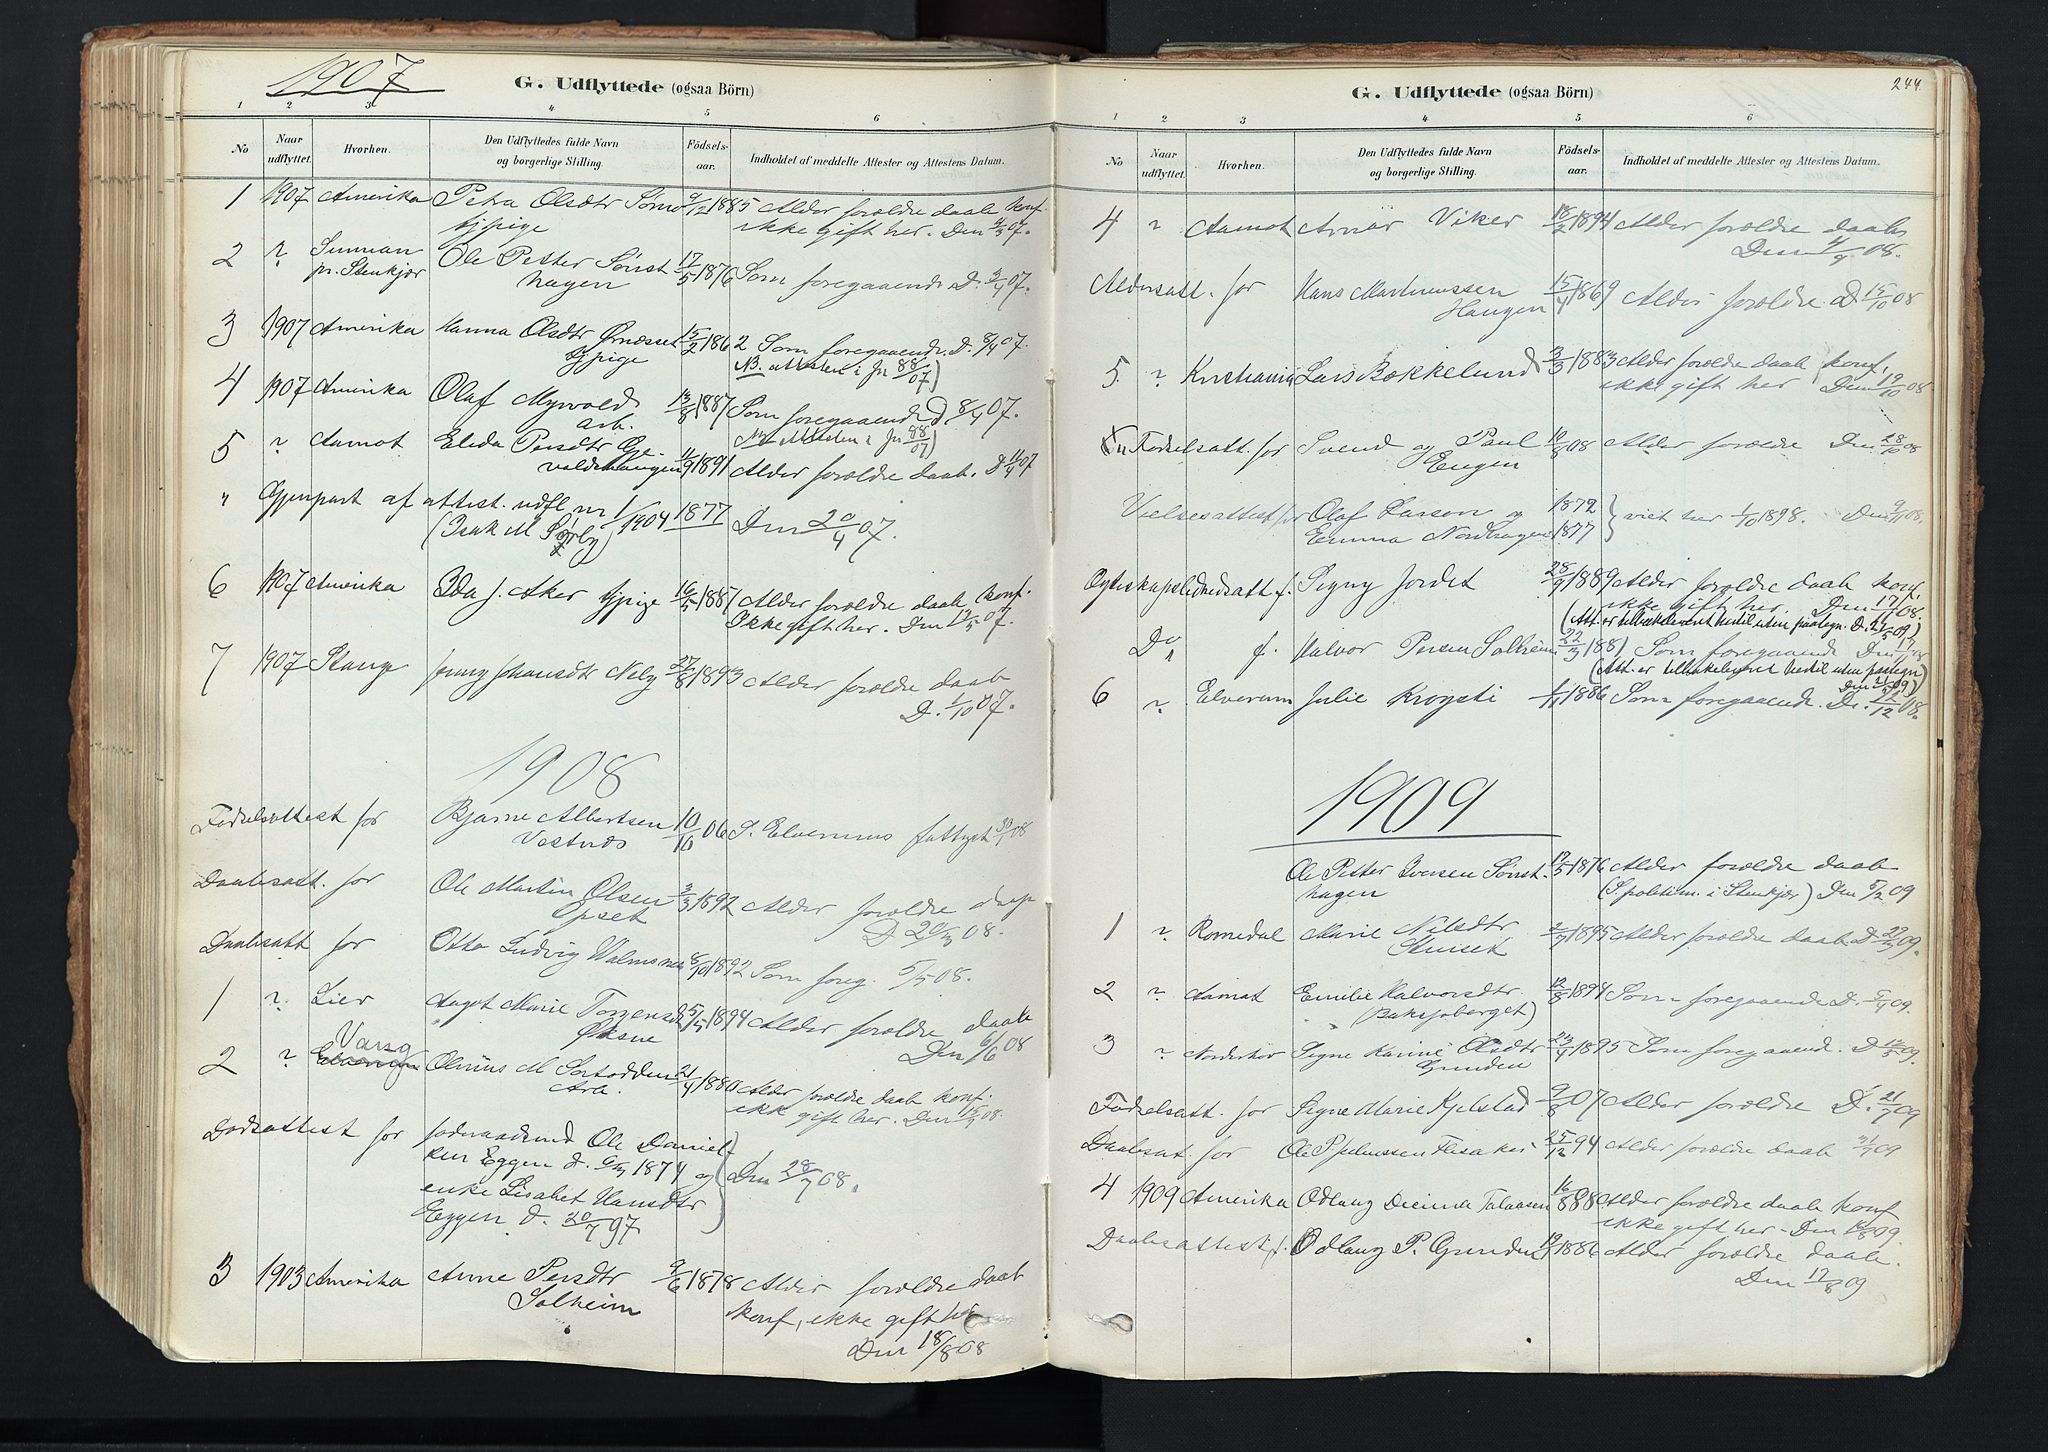 1907
G. Udflyttede (ogsaa Börn)
1 2 3 4 5 6
No
Naar udflyttet.
Hvorhen.
Den Udflyttedes fulde Navn og borgerlige Stilling.
Födsels-aar.
Indholdet af meddelte Attester og Attestens Datum.
1 1907 Amerika Petra Olsdtr 9/12 1885 Alder foreldre daab konf.
tjpige ikke gift her. Den 4/3 07.
2 " Snmaan Ole Petter Sönst 17/5 1876 Som foregaaende D. 3/4 07.
pr. Stenkjær hagen
3 1907 Amerika Hanna Olsdtr Ørnæsset 15/2 1862 Som foregaaende. D. 8/4 07.
tjpige NB. attesten i jn 88/07)
4 1907 Amerika Olaf Myrvold 13/8 1887 Som foregaaende d. 8/4 07.
arb. attesten i jn 88/07)
5 " Aamot Elida Persdtr Ge- 11/9 1891 Alder foreldre daab. D 11/4 07
valdshaugen
" Gjenpart af attest. udfl. nr 1/1904 1877 Den 20/4 07.
(Isak M Sörby)
6 1907 Amerika Ida J. Aker tjpige 16/5 1887 Alder foreldre daab konf.
Ikke gift her. Den 13/5 07.
7 1907 Stange Jenny Johansdtr Neby 27/8 1893 Alder foreldre daab
D. 1/10 07.
1908
Födselsattest for Bjarne Albertsen 10/10 06 S. Elverums fattigst 30/1 08
Vestnes
Daabsatt. for Ole Martin Olsen 3/3 1892 Alder foreldre daap
Opset D 20/3 08.
Daabsatt for Otto Ludvig Halmsnæs 8/10 1892 Som foreg. 5/5 08.
1 " Lier Aagot Marie Torgersdt 5/5 1894 Alder foreldre daab
Øksne Den 6/6 08
Varsg
2 " Elverum Olinius M Sortodden 21/4 1880 Alder foreldre daab konf.
Arb. ikk gift her. Den 15/7 08.
Dødsattest for forhenværende Ole Daniel-
sen Eggen d. 1874 og Den 28/7 08.
enke Lisabet Hansdtr
Eggen d. 20/7 97.
3 1903 Amerika Anne Persdtr 9/6 1878 Alder foreldre daab
Solheim konf, ikke gift her
Den 18/8 08
244
G. Udflyttede (ogsaa Börn)
1 2 3 4 5 6
No
Naar udflyttet.
Hvorhen.
Den Udflyttedes fulde Navn og borgerlige Stilling.
Födsels-aar.
Indholdet af meddelte Attester og Attestens Datum.
4 " Aamot Arnar Viker 18/2 1894 Alder foreldre daab
Den 4/9 08.
Aldersatt. for Hans Martinussen 15/4 1869 Alder foreldre. D 15/10 08
Haugen
5. " Kristiania Lars Bækkelund 3/3 1883 Alder foreldre daab konf.
ikke gift her Den 19/10 08
Födselsatt. for Svend og Paul 12/8 08 Alder foreldre Den 28/10 08
Engen
Vielsesattest for Olaf Larson og 1872 } viet her 1/10 1898. Den 9/11 08.
Emma Nordhagen 1877
Ægteskapsledighedsatt f. Signy Jordet 28/9 1889 Alder foreldre daab konf.
ikke gift her. Den 17/11 08.
(Att. er tilbakeleveret hertil uten paategn. D. 21/5 09)
Do f. Halvor Persen Solheim 22/3 1881 Som foregaaende Den 17/11 08
(Att. er tilbakeleveret hertil uten paategn
Den 21/5 09)
6 " Elverum Julie Krogsti 1/11 1886 Som foregaaende. Den 22/12 08.
1909
Ole Petter Iversen Sönst- 17/5 1876 Alder foreldre daab
hagen (S. politim. i Stenkjær) Den 5/2 09
1 " Romedal Marie Nilsdtr 2/7 1895 Alder foreldre daab D. 22/3 09.
2 " Aamot Emilie Halvorsdtr 12/8 1894 Som foregaaende D. 5/4 09.
(Buksjøberget)
3 " Norderhov Signe Karine Olsdtr 23/4 1895 Som foregaaend. D 12/5 09.
Grinden
Födselsatt. for Signe Marie Kjelstad 9/8 07 Alder foreldre D. 21/7 09
Daabsat. for Ole P. Flisaker 25/12 94 Alder foreldre daab 31/7 09
4 1909 Amerika Odlaug Decinda Talaasen 16/8 88 Alder foreldre daab konf
ikke gift her. Den 16/8 09.
Daabsattest f. Odlaug P. Grinden 1886 Alder foreldre daab.
Den 17/8 09